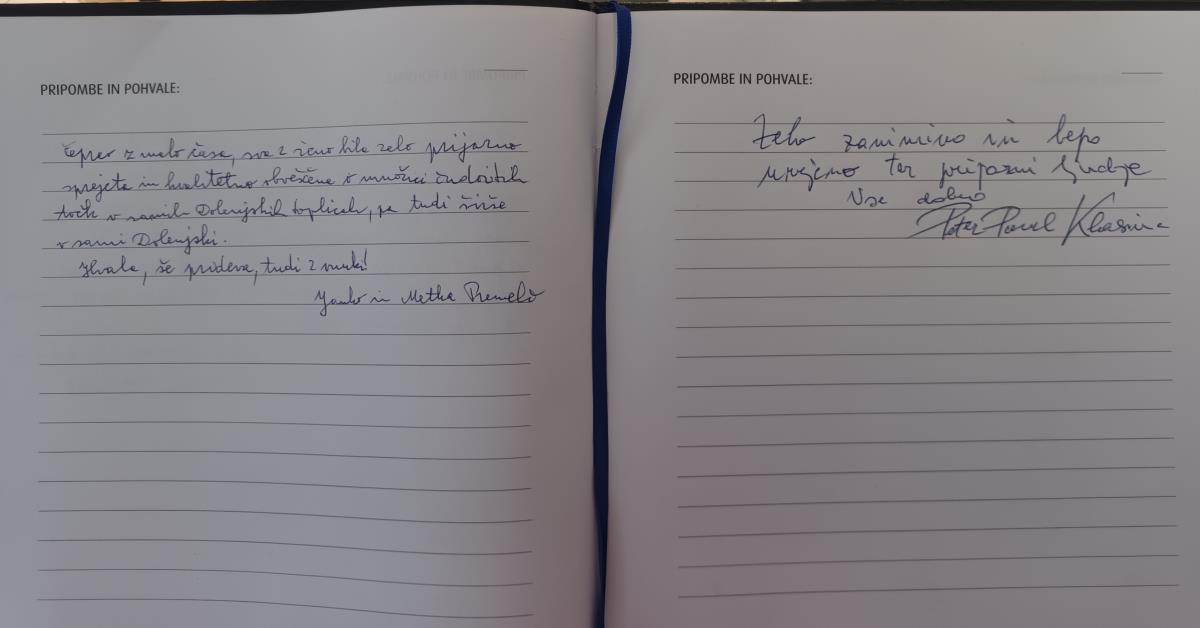 PRIPOMBE IN POHVALE:
čeprav z malo časa, sva z ženo bila zelo prijazno
sprejeta in kvalitetno obveščena o množici čudovitih
točk v samih Dolenjskih toplicah, pa tudi širše
v sami Dolenjski.
Hvala, še prideva, tudi z vnuki!
Janko in Metka
PRIPOMBE IN POHVALE:
Zelo zanimivo in lepo
urejeno ter prijazni ljudje
Vse dobro
Peter Pavel Klasinc